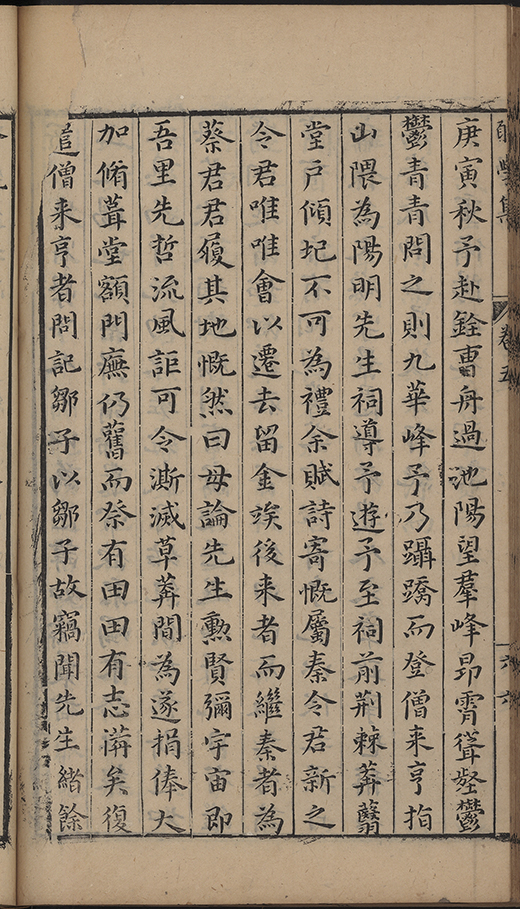 願學集
卷五
六六
庚寅秋予赴銓曹舟過池陽望羣峰昂霄聳壑鬱
鬱青青問之則九華峰予乃躡蹻而登僧来亨指
山隈為陽明先生祠導予遊予至祠前荆棘莽翳
堂戶傾圮不可為禮余賦詩寄慨屬秦令君新之
令君唯唯會以遷去留金竢後来者而繼秦者為
蔡君君履其地慨然曰毋論先生勲賢彌宇宙即
吾里先哲流風詎可令澌滅草莽間為遂捐俸大
加脩葺堂額門廡仍舊而祭有田田有志備矣復
遣僧来亨者問記鄒子以鄒子故竊聞先生緒餘